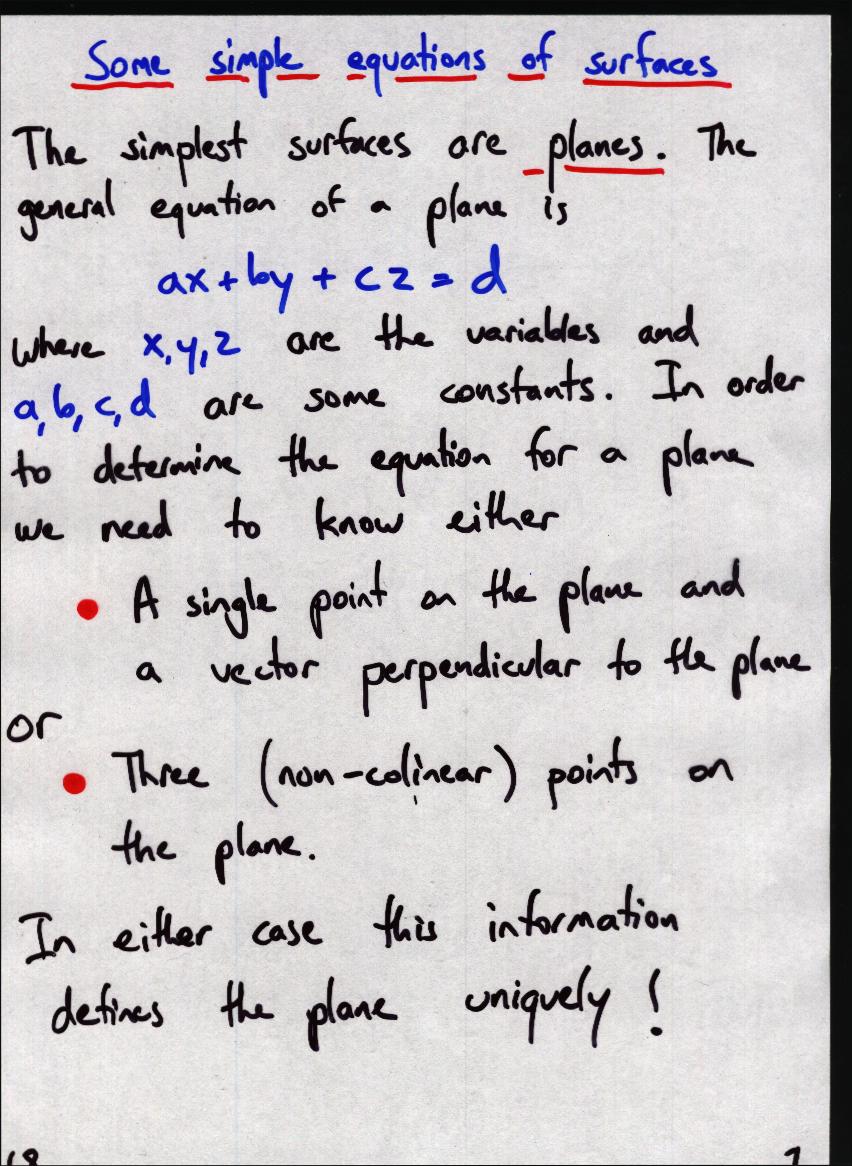 Some simple equations of surfaces
The simplest surfaces are planes. The
general equation of a plane is
ax + by + cz = d
where x, y, z are the variables and
a, b, c, d are some constants. In order
to determine the equation for a plane
we need to know either
• A single point on the plane and
a vector perpendicular to the plane
or
• Three (non-colinear) points on
the plane.
In either case this information
defines the plane uniquely!